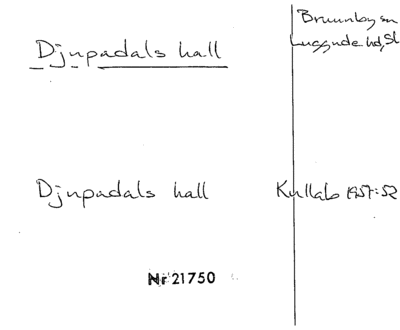 Djupadals hall
Brunnby sn
Luggude hd, Sk
Djupadals hall
Kullab 1957:52
Nr 21750